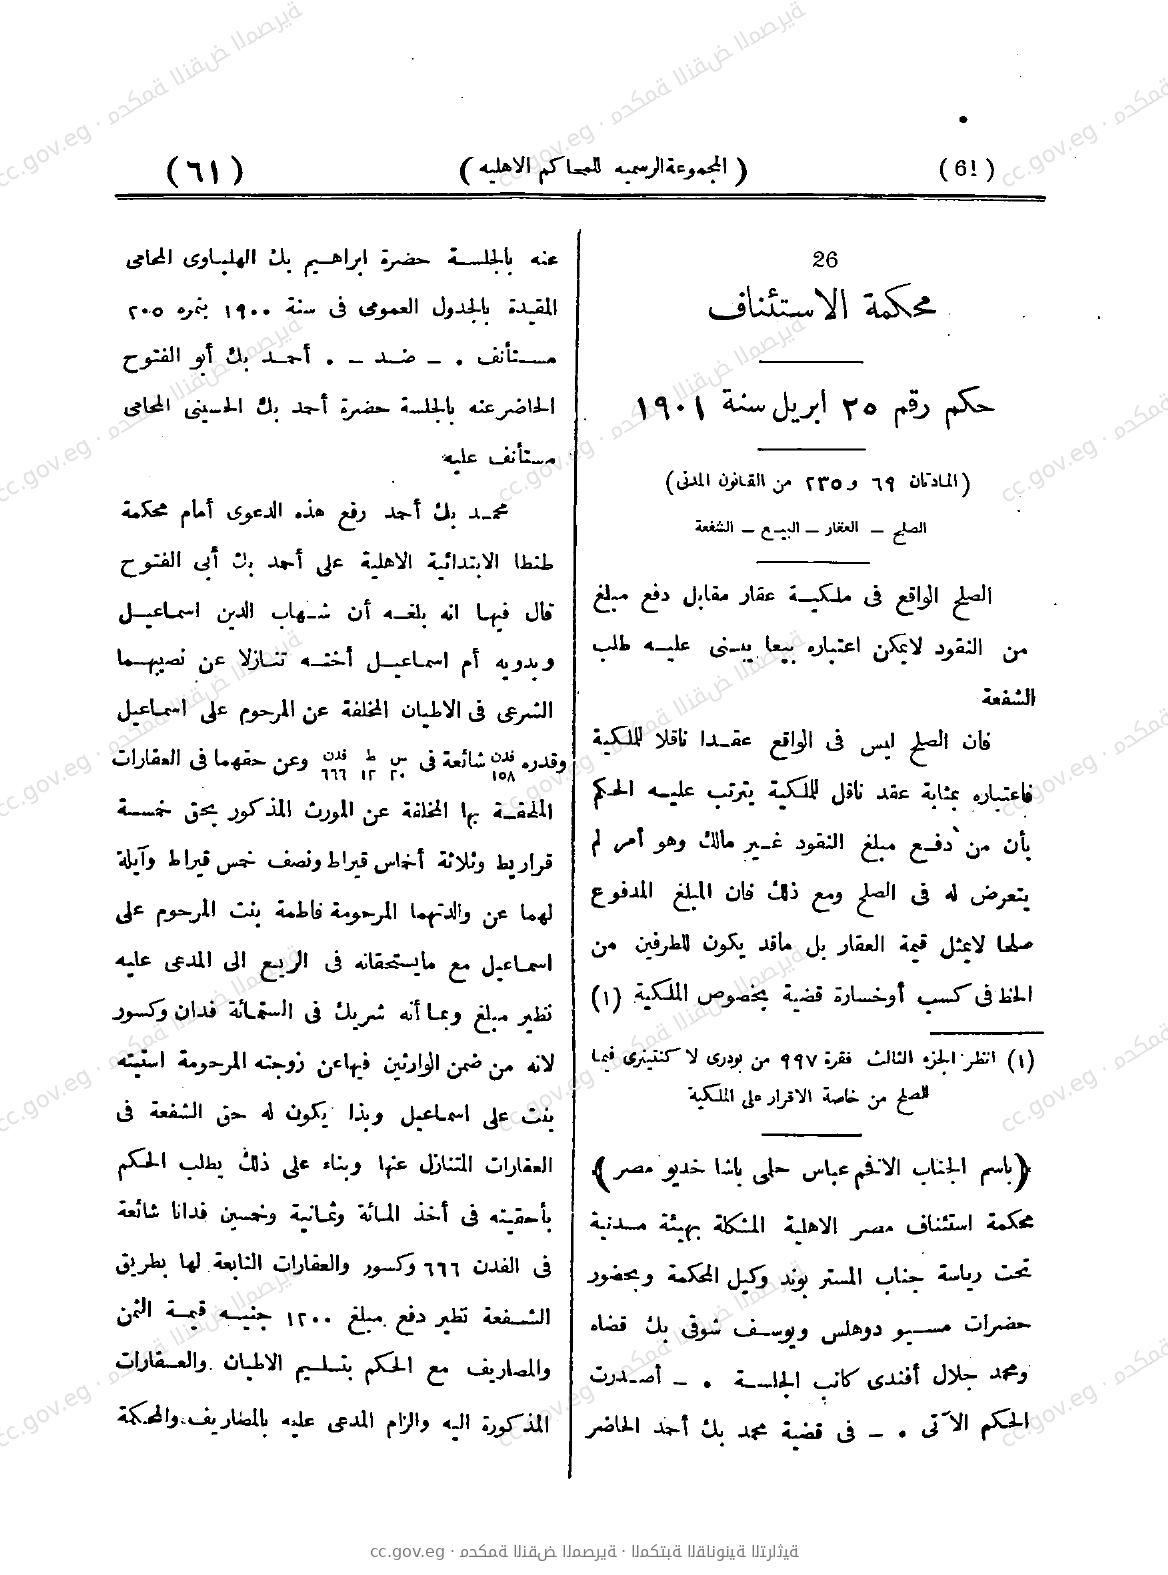 (61)
(المجموعة الرسميه للمحاكم الاهليه)
(٦١)
26
محكمة الاستئناف
حكم رقم ٢٥ ابريل سنة ١٩٠١
(المادتان ٦٩ و ٢٣٥ من القانون المدنى)
الصلح – العقار – البيع – الشفعة
الصلح الواقع فى ملكية عقار مقابل دفع مبلغ
من النقود لايمكن اعتباره بيعا يبنى عليه طلب
الشفعة
فان الصلح ليس فى الواقع عقدا ناقلا للملكية
فاعتباره بمثابة عقد ناقل للملكية يترتب عليه الحكم
بأن من دفع مبلغ النقود غير مالك وهو أمر لم
يتعرض له فى الصلح ومع ذلك فان المبلغ المدفوع
صلحا لايمثل قيمة العقار بل ماقد يكون للطرفين من
الحظ فى كسب أوخسارة قضية بخصوص الملكية (١)
(١) انظر الجزء الثالث فقرة ٩٩٧ من بودرى لا كنتينرى فيما
للصلح من خاصة الاقرار على الملكية
(باسم الجناب الافخم عباس حلمى باشا خديو مصر)
محكمة استئناف مصر الاهلية المشكلة بهيئة مدنية
تحت رياسة جناب المستر بوند وكيل المحكمة وبحضور
حضرات مسيو دوهلس ويوسف شوقى بك قضاه
ومحمد جلال أفندى كاتب الجلسة . – أصدرت
الحكم الآتى . – فى قضية محمد بك أحمد الحاضر
عنه بالجلسة حضرة ابراهيم بك الهلباوى المحامى
المقيدة بالجدول العمومى فى سنة ١٩٠٠ بنمره ٢٠٥
مستأنف . – ضد – . أحمد بك أبو الفتوح
الحاضر عنه بالجلسة حضرة أحمد بك الحسينى المحامى
مستأنف عليه
محمد بك أحمد رفع هذه الدعوى أمام محكمة
طنطا الابتدائية الاهلية على أحمد بك أبى الفتوح
قال فيها انه بلغه أن شهاب الدين اسماعيل
وبدويه أم اسماعيل أخته تنازلا عن نصيبهما
الشرعى فى الاطيان المخلفة عن المرحوم على اسماعيل
وقدره فدن ١٥٨ شائعة فى س ٢٠ ط ١٢ فدن ٦٦٦ وعن حقهما فى العقارات
الملحقة بها المخلفة عن المورث المذكور بحق خمسة
قراريط وثلاثة أخماس قيراط ونصف خمس قيراط وآيلة
لهما عن والدتهما المرحومة فاطمة بنت المرحوم على
اسماعيل مع مايستحقانه فى الريع الى المدعى عليه
نظير مبلغ وبما أنه شريك فى الستمائة فدان وكسور
لانه من ضمن الوارثين فيهاعن زوجته المرحومة استيته
بنت على اسماعيل وبذا يكون له حق الشفعة فى
العقارات المتنازل عنها وبناء على ذلك يطلب الحكم
بأحقيته فى أخذ المائة وثمانية وخمسين فدانا شائعة
فى الفدن ٦٦٦ وكسور والعقارات التابعة لها بطريق
الشفعة نظير دفع مبلغ ١٢٠٠ جنيه قيمة الثمن
والمصاريف مع الحكم بتسليم الاطيان والعقارات
المذكورة اليه والزام المدعى عليه بالمصاريف والمحكمة
cc.gov.eg · محكمة النقض المصرية · المكتبة القانونية التراثية